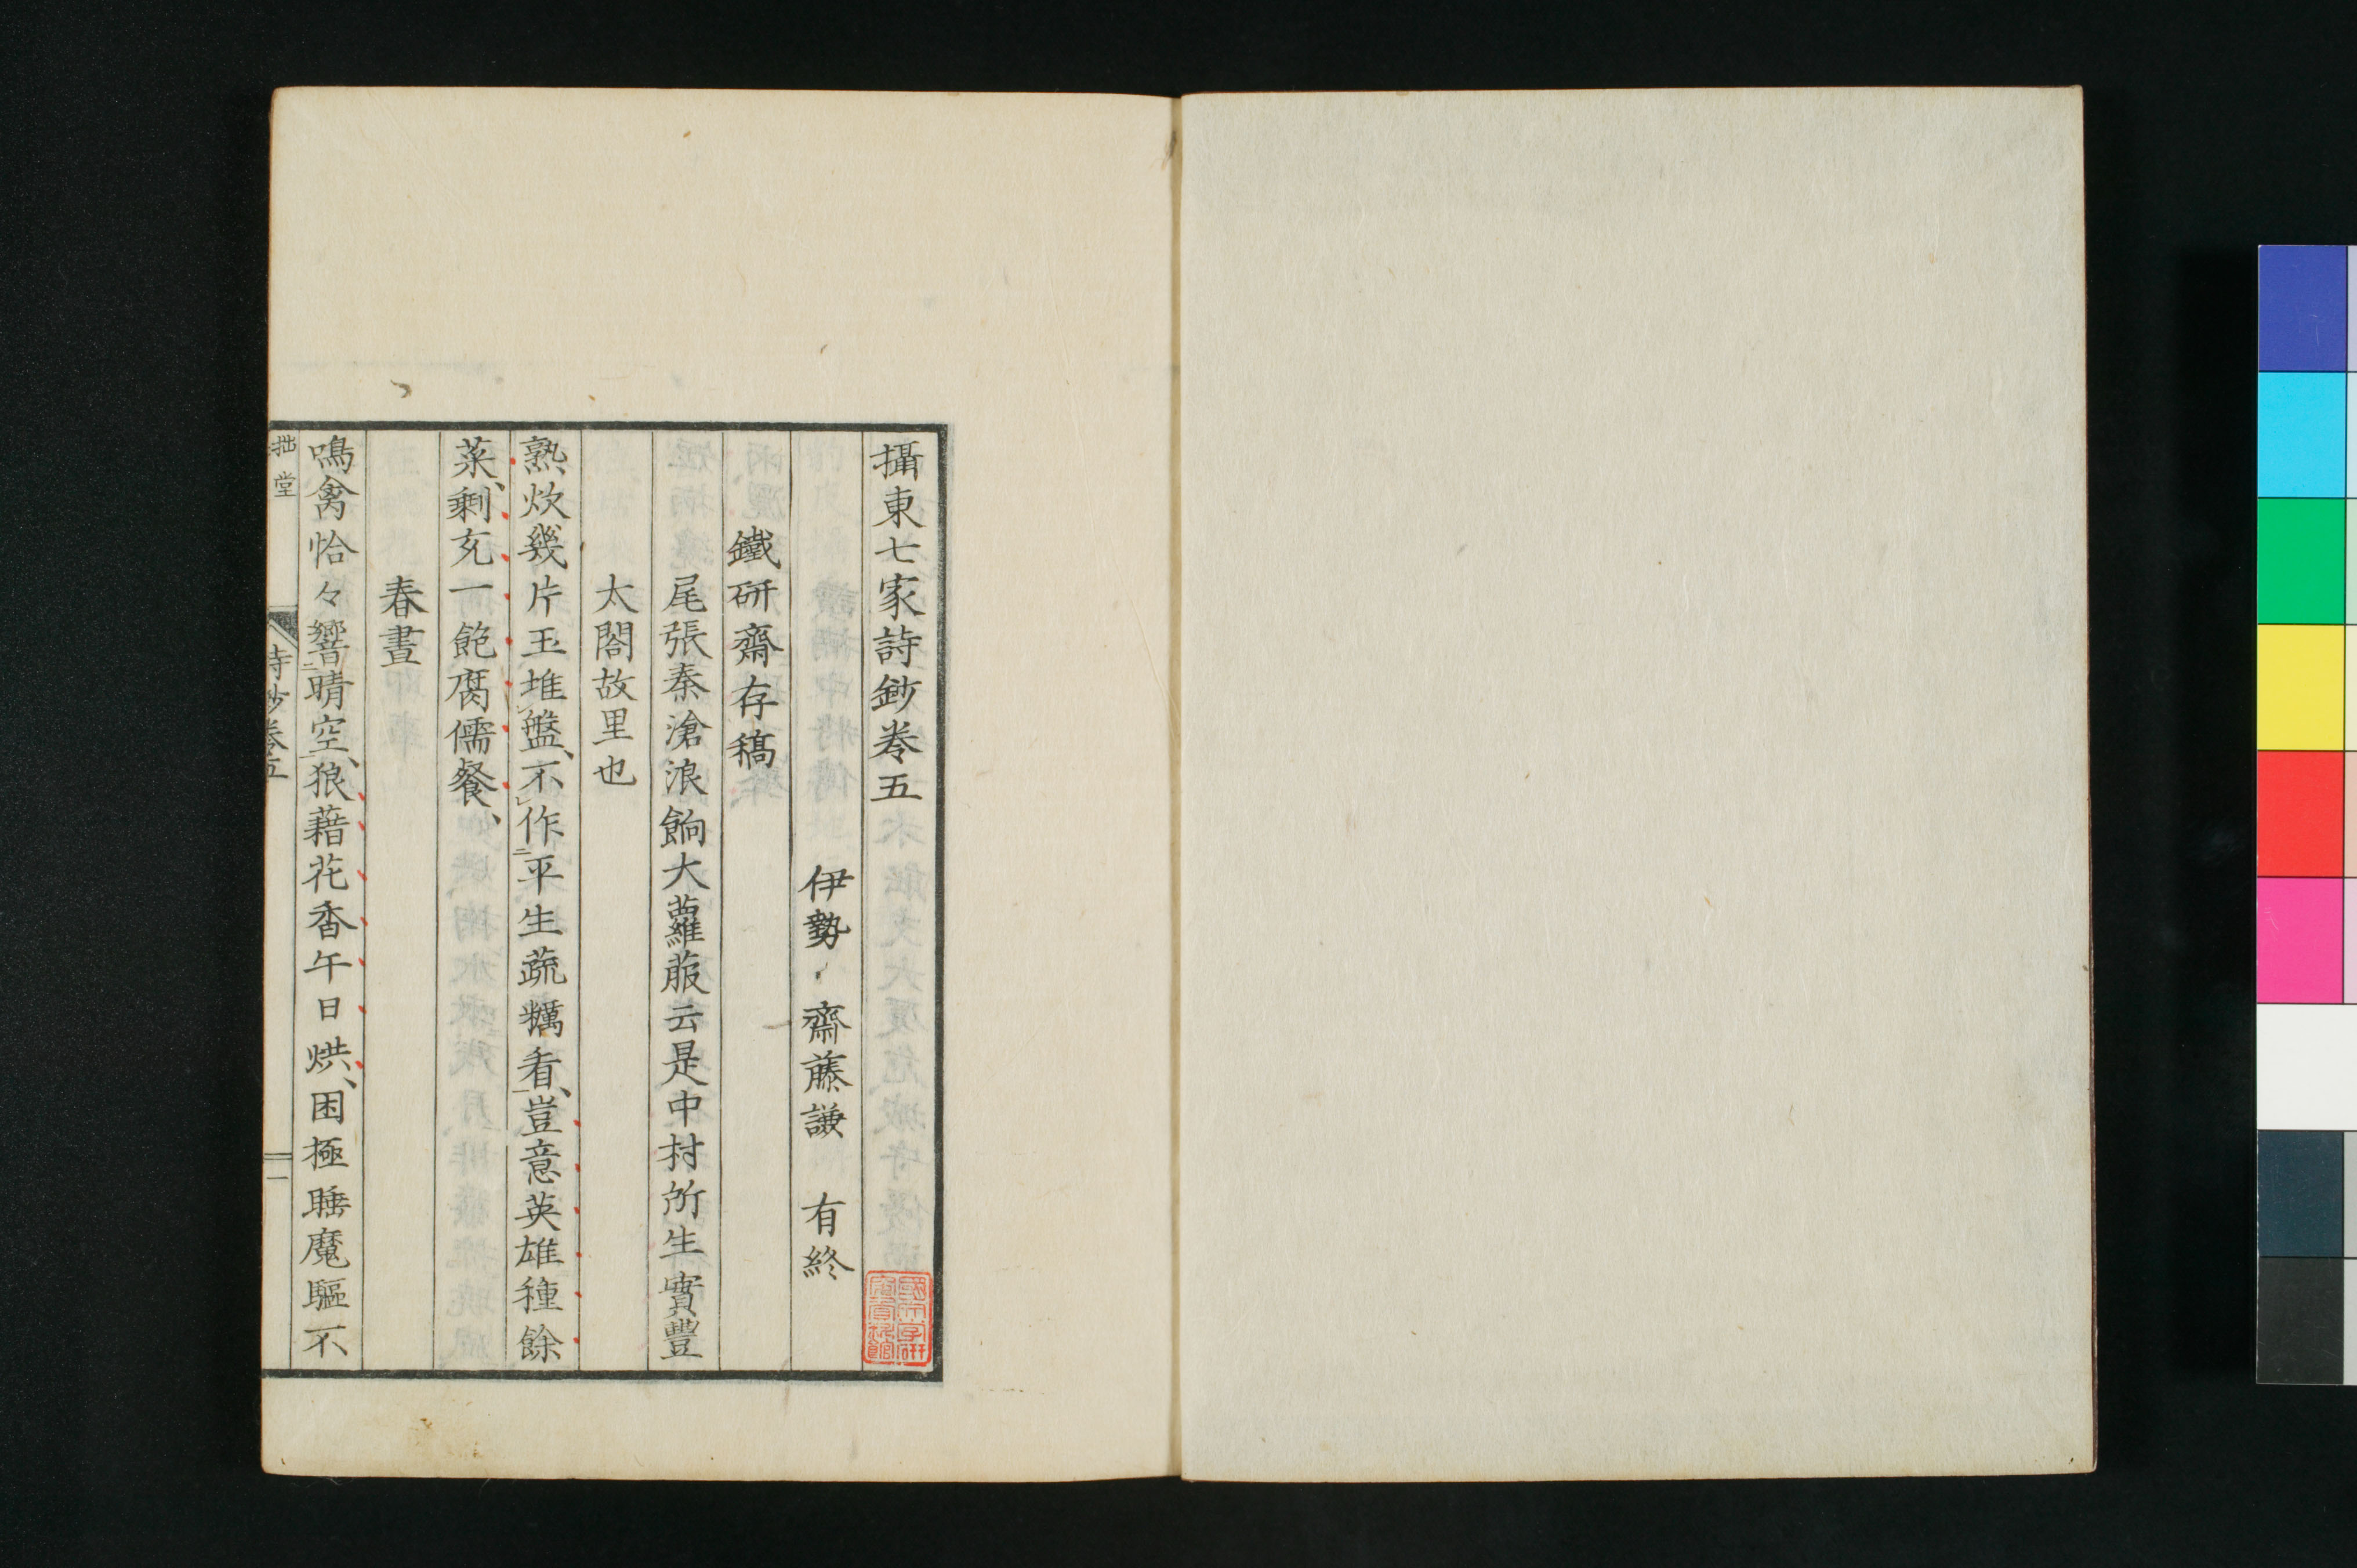 攝東七家詩鈔卷五
伊勢 齋藤謙 有終
鐵研齋存稿
尾張秦滄浪餉大蘿菔云是中村所生實豐
太閤故里也
熟炊幾片玉堆盤、不作平生蔬糲看、豈意英雄種餘
菜、剩充一飽腐儒餐、
春晝
鳴禽恰々響晴空、狼藉花香午日烘、困極睡魔驅不
拙堂
詩鈔卷五
一